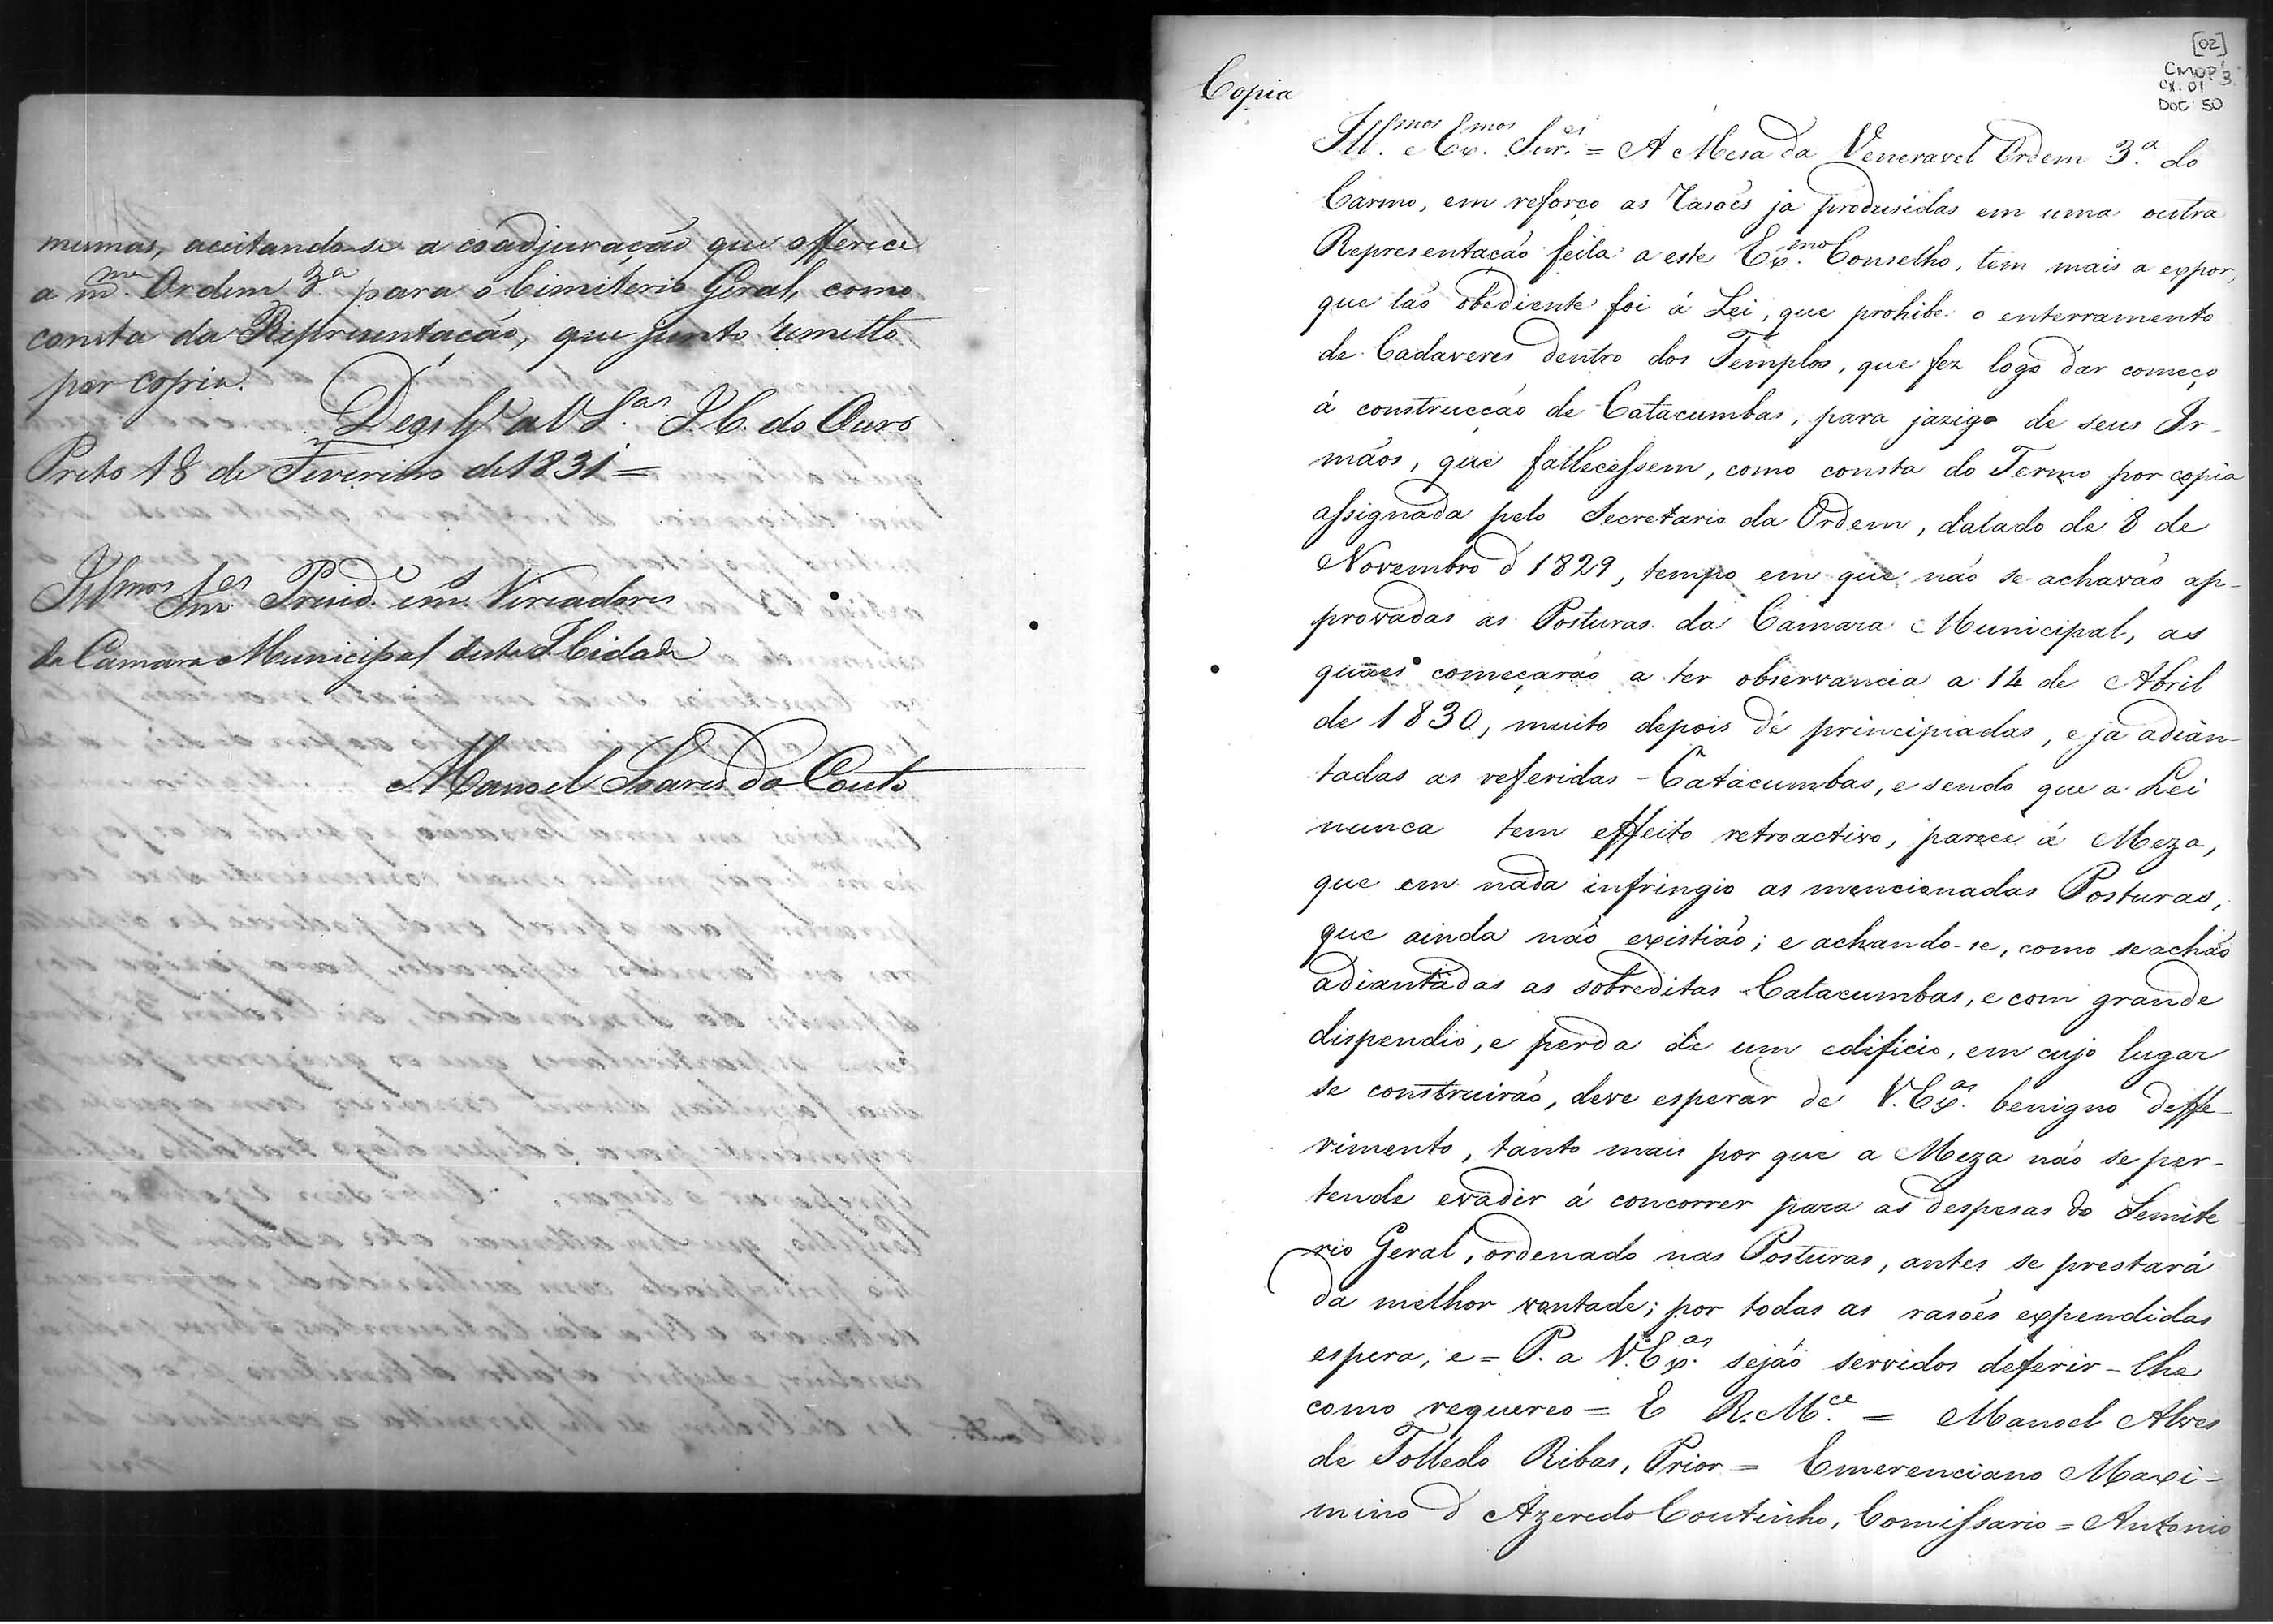 mesmas, aceitando-se a coadjuvação que offerece
a m.ma Ordem 3.a para o Cimiterio Geral, como
consta da Representação, que junto remetto
por copia.
Deos G.e a V S.as I. C. do Ouro
Preto 18 de Fevereiro de 1831 =
Ill.mos Snr.es Presid.e e m.s Vereadores
da Camara Municipal desta I. Cidade
Manoel Soares do Couto
[02]
CMOP 3
CX. 01
DOC 50
Copia
Ill.mos e Ex.mos Snr.es = A Mesa da Veneravel Ordem 3.a do
Carmo, em reforço as rasoẽs já produsidas em uma outra
Representacão feita a este Ex.mo Conselho, tem mais a expor,
que tão obediente foi á Lei, que prohibe o enterramento
de Cadaveres dentro dos Templos, que fez logo dar começo
á construcção de Catacumbas, para jazigo de seus Ir-
mãos, que fallecessem, como consta do Termo por copia
assignada pelo Secretario da Ordem, datado de 8 de
Novembro d 1829, tempo em que não se achavão ap-
provadas as Posturas da Camara Municipal, as
quães começarão a ter observancia a 14 de Abril
de 1830, muito depois de principiadas, e já adian-
tadas as referidas Catacumbas, e sendo que a Lei
nunca tem effeito retroactivo, parece á Meza,
que em nada infringio as mencionadas Posturas,
que ainda não existião; e achando-se, como se achão
adiantadas as sobreditas Catacumbas, e com grande
dispendio, e perda de um edificio, em cujo lugar
se construirão, deve esperar de V. Ex.as benigno deffe-
rimento, tanto mais por que a Meza não se per-
tende evadir á concorrer para as despesas do Semite
rio Geral, ordenado nas Posturas, antes se prestará
da melhor vontade; por todas as rasões expendidas
espera, e = P. a V. Ex.as sejão servidos deferir-lhe
como requereo = E R. M.ce = Manoel Alves
de Tolledo Ribas, Prior = Emerenciano Maxi-
mino d Azeredo Coutinho, Comissario = Antonio